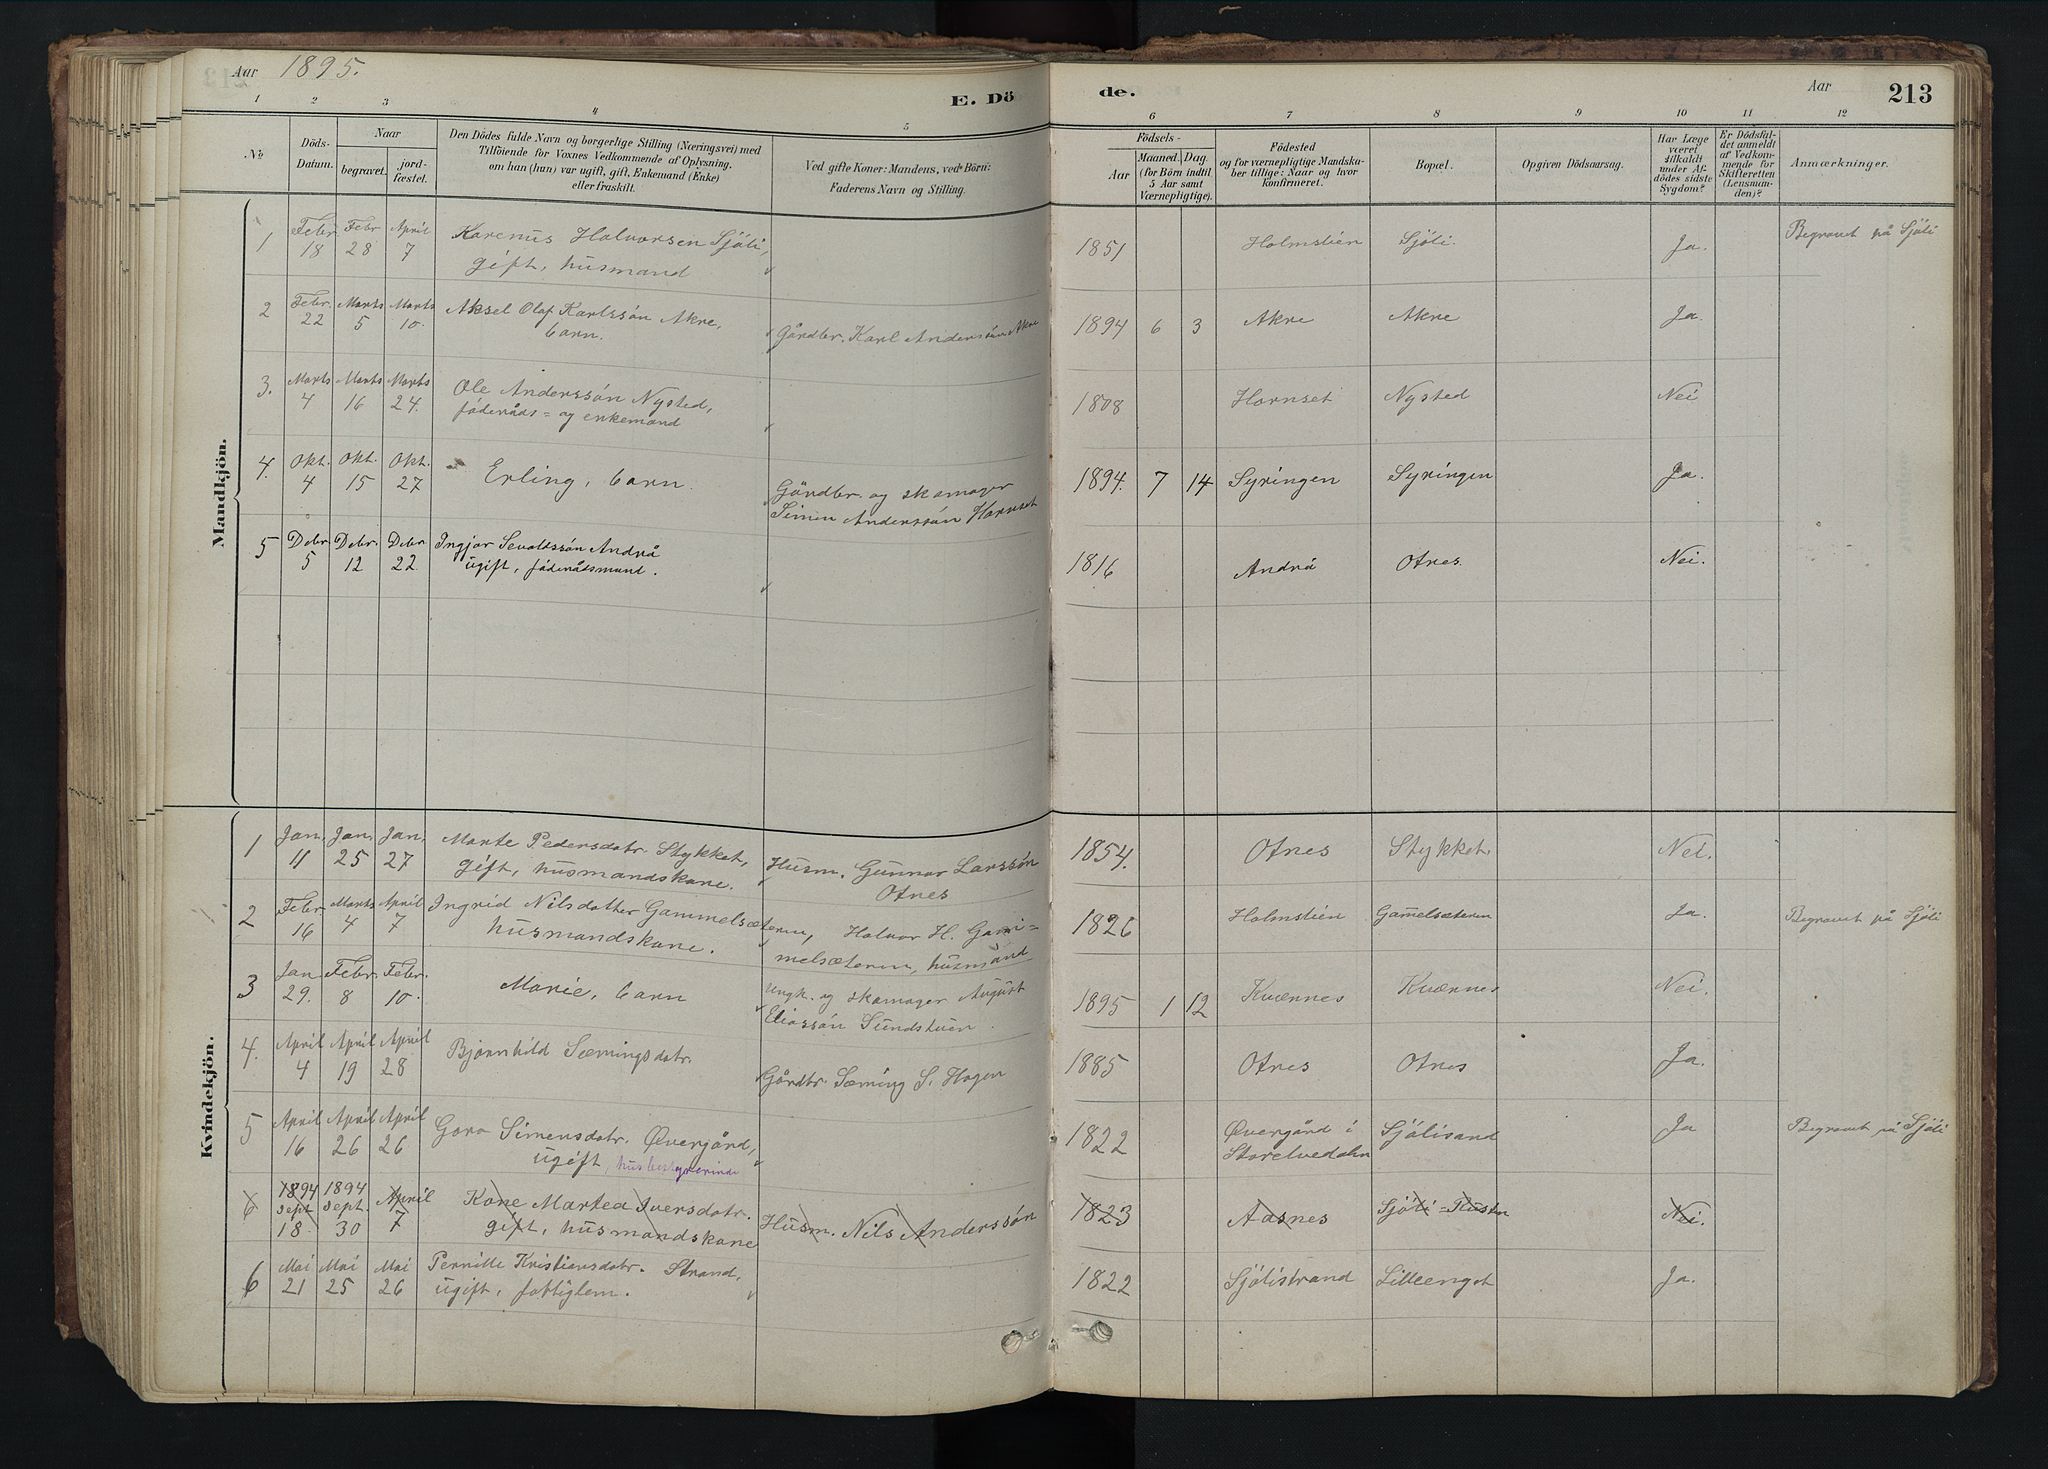 Aar 1895.
E. Dö
de.
Aar
213
1 2 3 4 5 6 7 8 9 10 11 12
No
Döds-
Datum.
Naar
begravet.
jord-
fæstet.
Den Dödes fulde Navn og borgerlige Stilling (Næringsvei) med
Tilföiende for Voxnes Vedkommende af Oplysning,
om han (hun) var ugift, gift, Enkemand (Enke)
eller fraskilt.
Ved gifte Koner: Mandens, ved Börn:
Faderens Navn og Stilling.
Födsels-
Aar
Maaned.
Dag.
(for Börn indtil
5 Aar samt
Værnepligtige).
Födested
og for værnepligtige Mandska-
ber tillige: Naar og hvor
konfirmeret.
Bopæl.
Opgiven Dödsaarsag.
Har Læge
været
tilkaldt
under Af-
dödes sidste
Sygdom?
Er Dödsfal-
det anmeldt
af Vedkom-
mende for
Skifteretten
(Lensman-
den)?
Anmærkninger.
Mandkjön.
1 Febr 18 Febr 28 April 7 Karenus Halvorsen Sjöli, 1851 Holmstien Sjöli. Ja. Begravet på Sjöli
gift, husmand
2 Febr. 22 Marts 5 Marts 10. Aksel Olaf Karlssön Akre, Gårdbr. Karl Anderssön Akre 1894 6 3 Akre Akre Ja.
barn.
3. Marts 4 Marts 16 Marts 24. Ole Anderssön Nysted, 1808 Hornset Nysted Nei
föderåds- og enkemand
4. Okt. 4 Okt. 15 Okt. 27 Erling, barn. Gårdbr. og skomager 1894. 7 14 Syringen Syringen Ja.
Simen Anderssön Hornset
5 Debr 5 Debr. 12 Debr 22 Ingjar Sevaldssön Andrå 1816 Andrå Otnes Nei.
ugift, föderådsmand.
Kvindekjön.
1 Jan. 11 Jan. 25 Jan. 27 Marte Pedersdatr. Stykket, Husm. Gunnar Larssön 1854. Otnes Stykket. Nei.
gift, husmandskone. Otnes
2 Febr 16 Marts 4 April 7 Ingrid Nilsdatter Gammelsæteren, Halvor H. Gam- 1826 Holmstien Gamelsæteren Ja. Begravet på Sjöli
husmandskone. melsæteren, husmand
3 Jan 29. Febr. 8 Febr. 10. Marie, barn Ungk. og skomager August 1895 1 12 Kværnnes Kværnnes Nei.
Eliassön Sundstuen.
4. April 4 April 19 April 28 Bjørnhild Sæmingsdatr. Gårdbr. Sæming S. Hagen 1885 Otnes Otnes Ja.
5 April 16 April 26 April 26 Goro Simensdatr. Øvergård, 1822 Øvergård i Sjölisand Ja Begravet på Sjöli
ugift, husbestyrerinde Storelvedalen
6 1894 Sept 18. 1894 Sept. 30 April 7 Kone Martea Iversdatr. Husm. Nils Anderssön 1823 Aasnes Sjöli-Rusten Nei.
gift, husmandskone
6 Mai 21 Mai 25 Mai 26 Pernille Kristiansdatr. Strand, 1822 Sjölistrand Lilleenget Ja.
ugift, fattiglem.